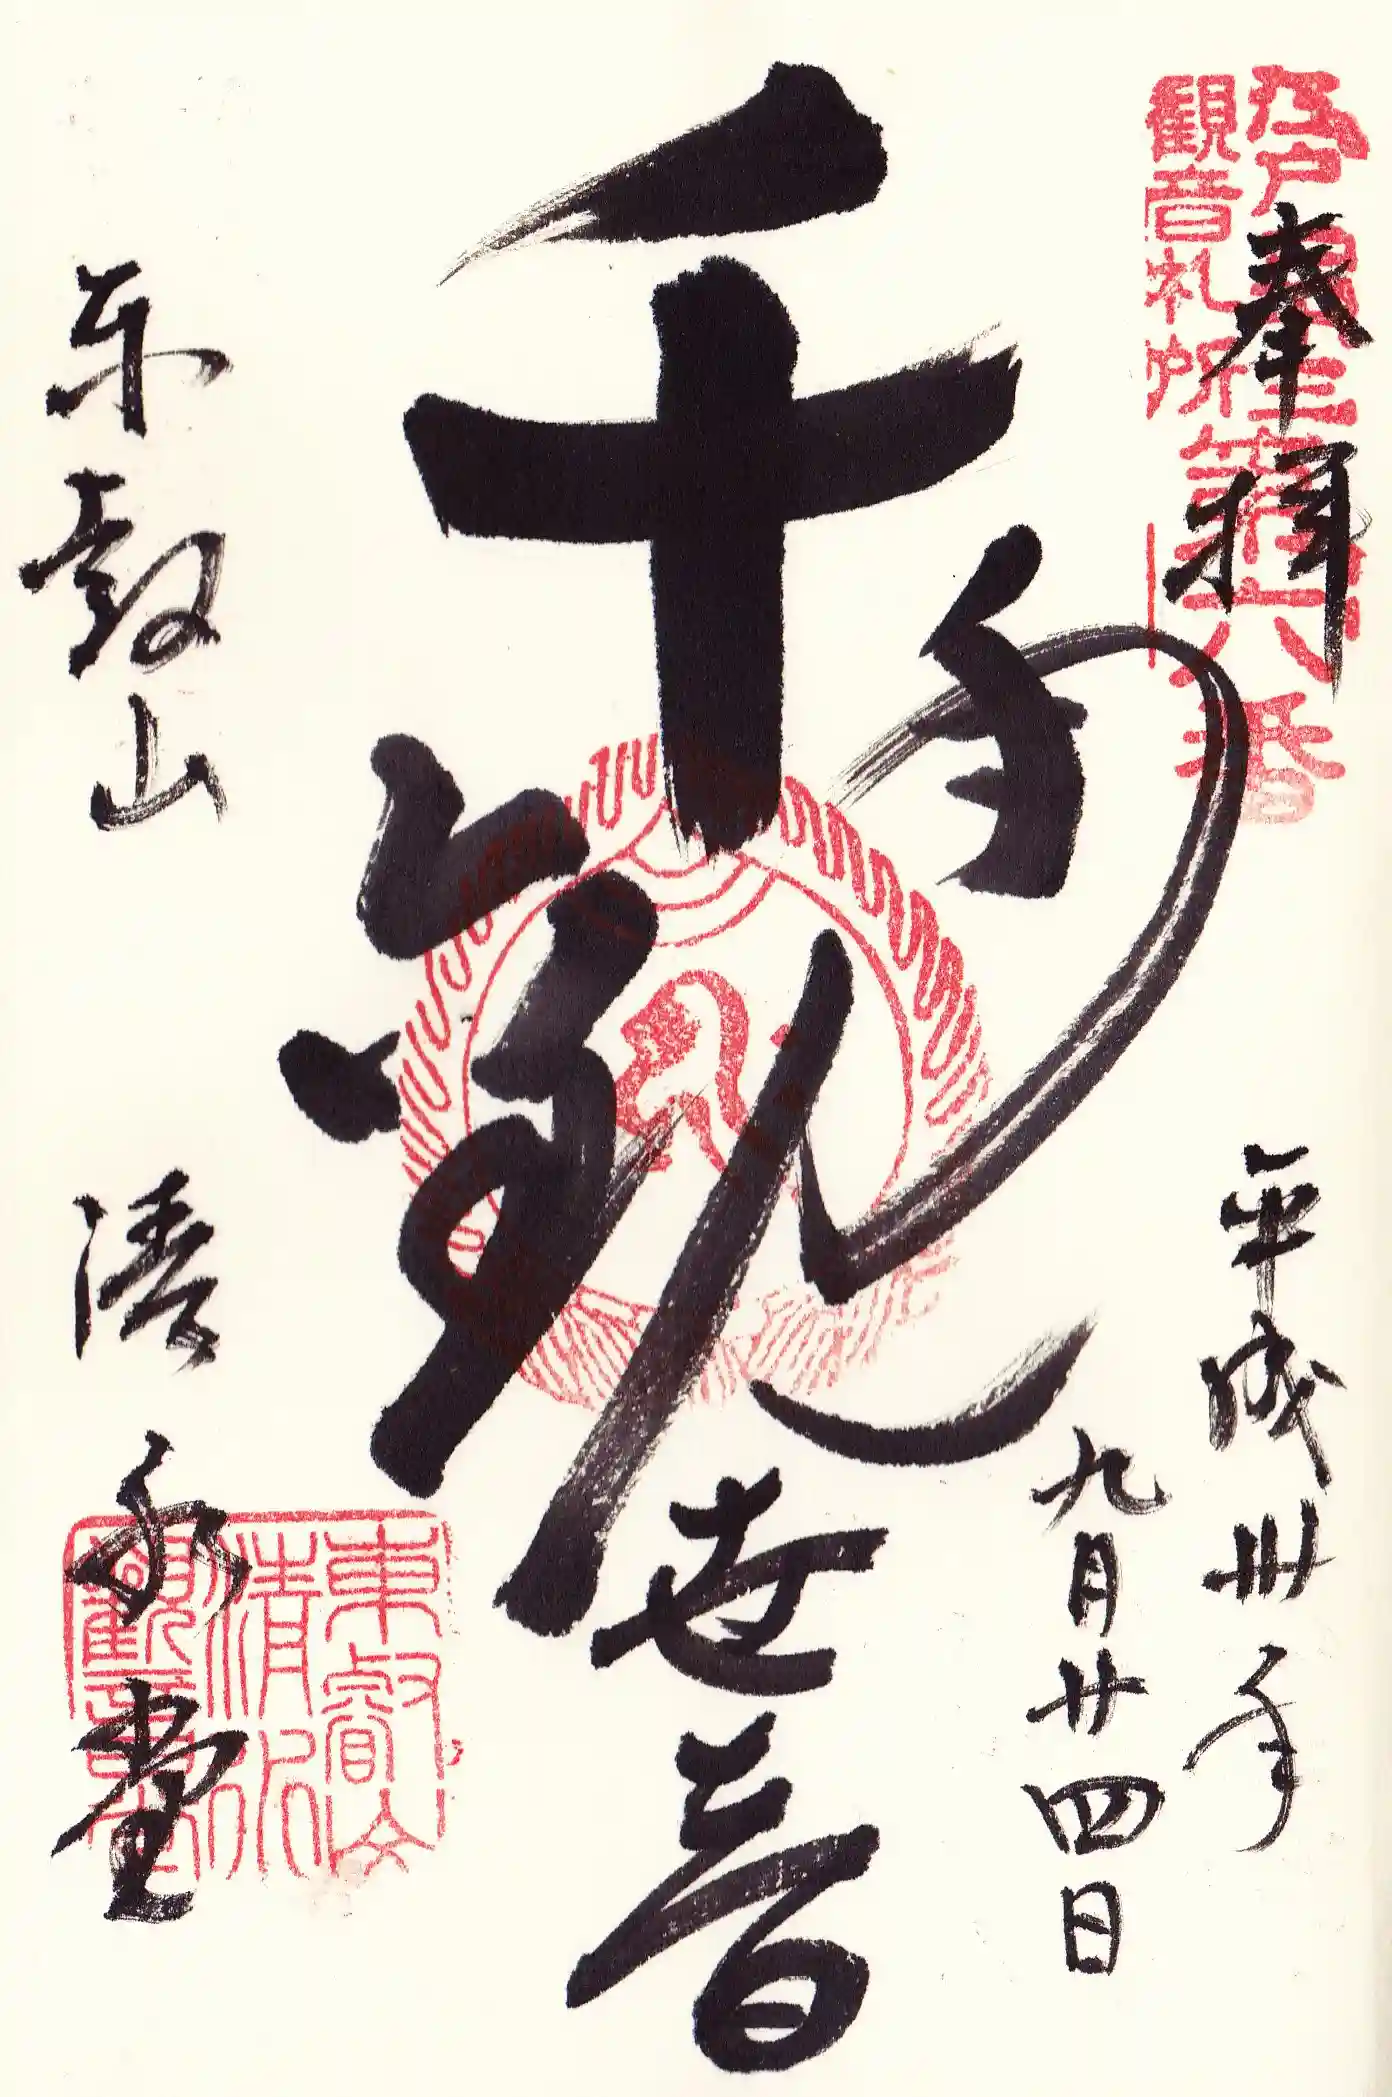 江戸三十三
観音札所
第六番
奉拝
平成卅年
九月廿四日
千手観世音
東叡山
清水堂
東叡山
清水
観音堂